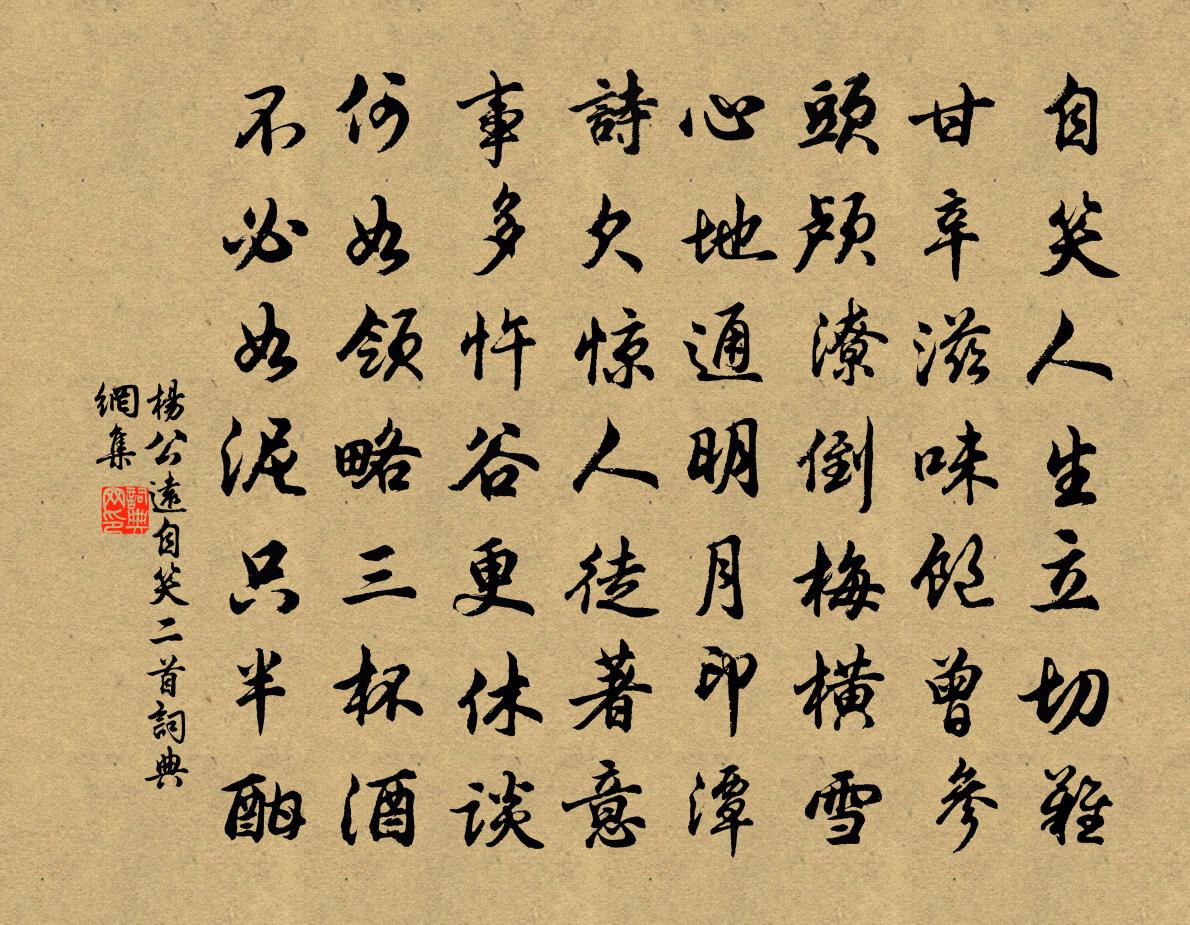 自笑人生立切難
甘辛滋味飽曾參
頭顱潦倒梅橫雪
心地通明月印潭
詩欠惊人徒著意
事多忤谷更休谈
何如領略三杯酒
不必如泥只半酣
楊公遠自笑二首詞典
網集
詞典
网印